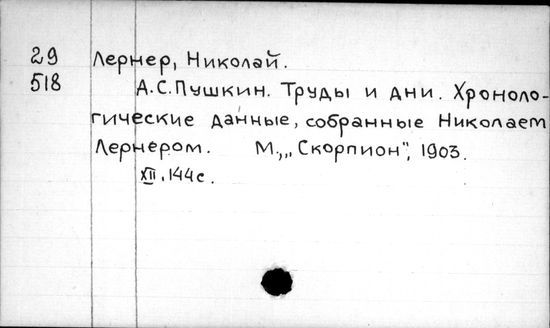 29 Лернер, Николай.
518 А.С.Пушкин. Труды и дни. Хроноло-
гические данные, собранные Николаем
Лернером. М.,„Скорпион", 1903.
XII, 144с.